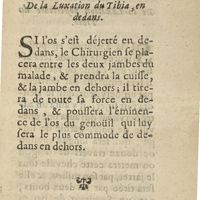 De la Luxation du Tibia, en
dedans.
SI l'os s'est déjetté en de-
dans, le Chirurgien se pla-
cera entre les deux jambes du
malade, & prendra la cuisse,
& la jambe en dehors, il tire-
ra de toute sa force en de-
dans, & poussera l'éminen-
ce de l'os du genoüil qui luy
sera le plus commode de de-
dans en dehors.